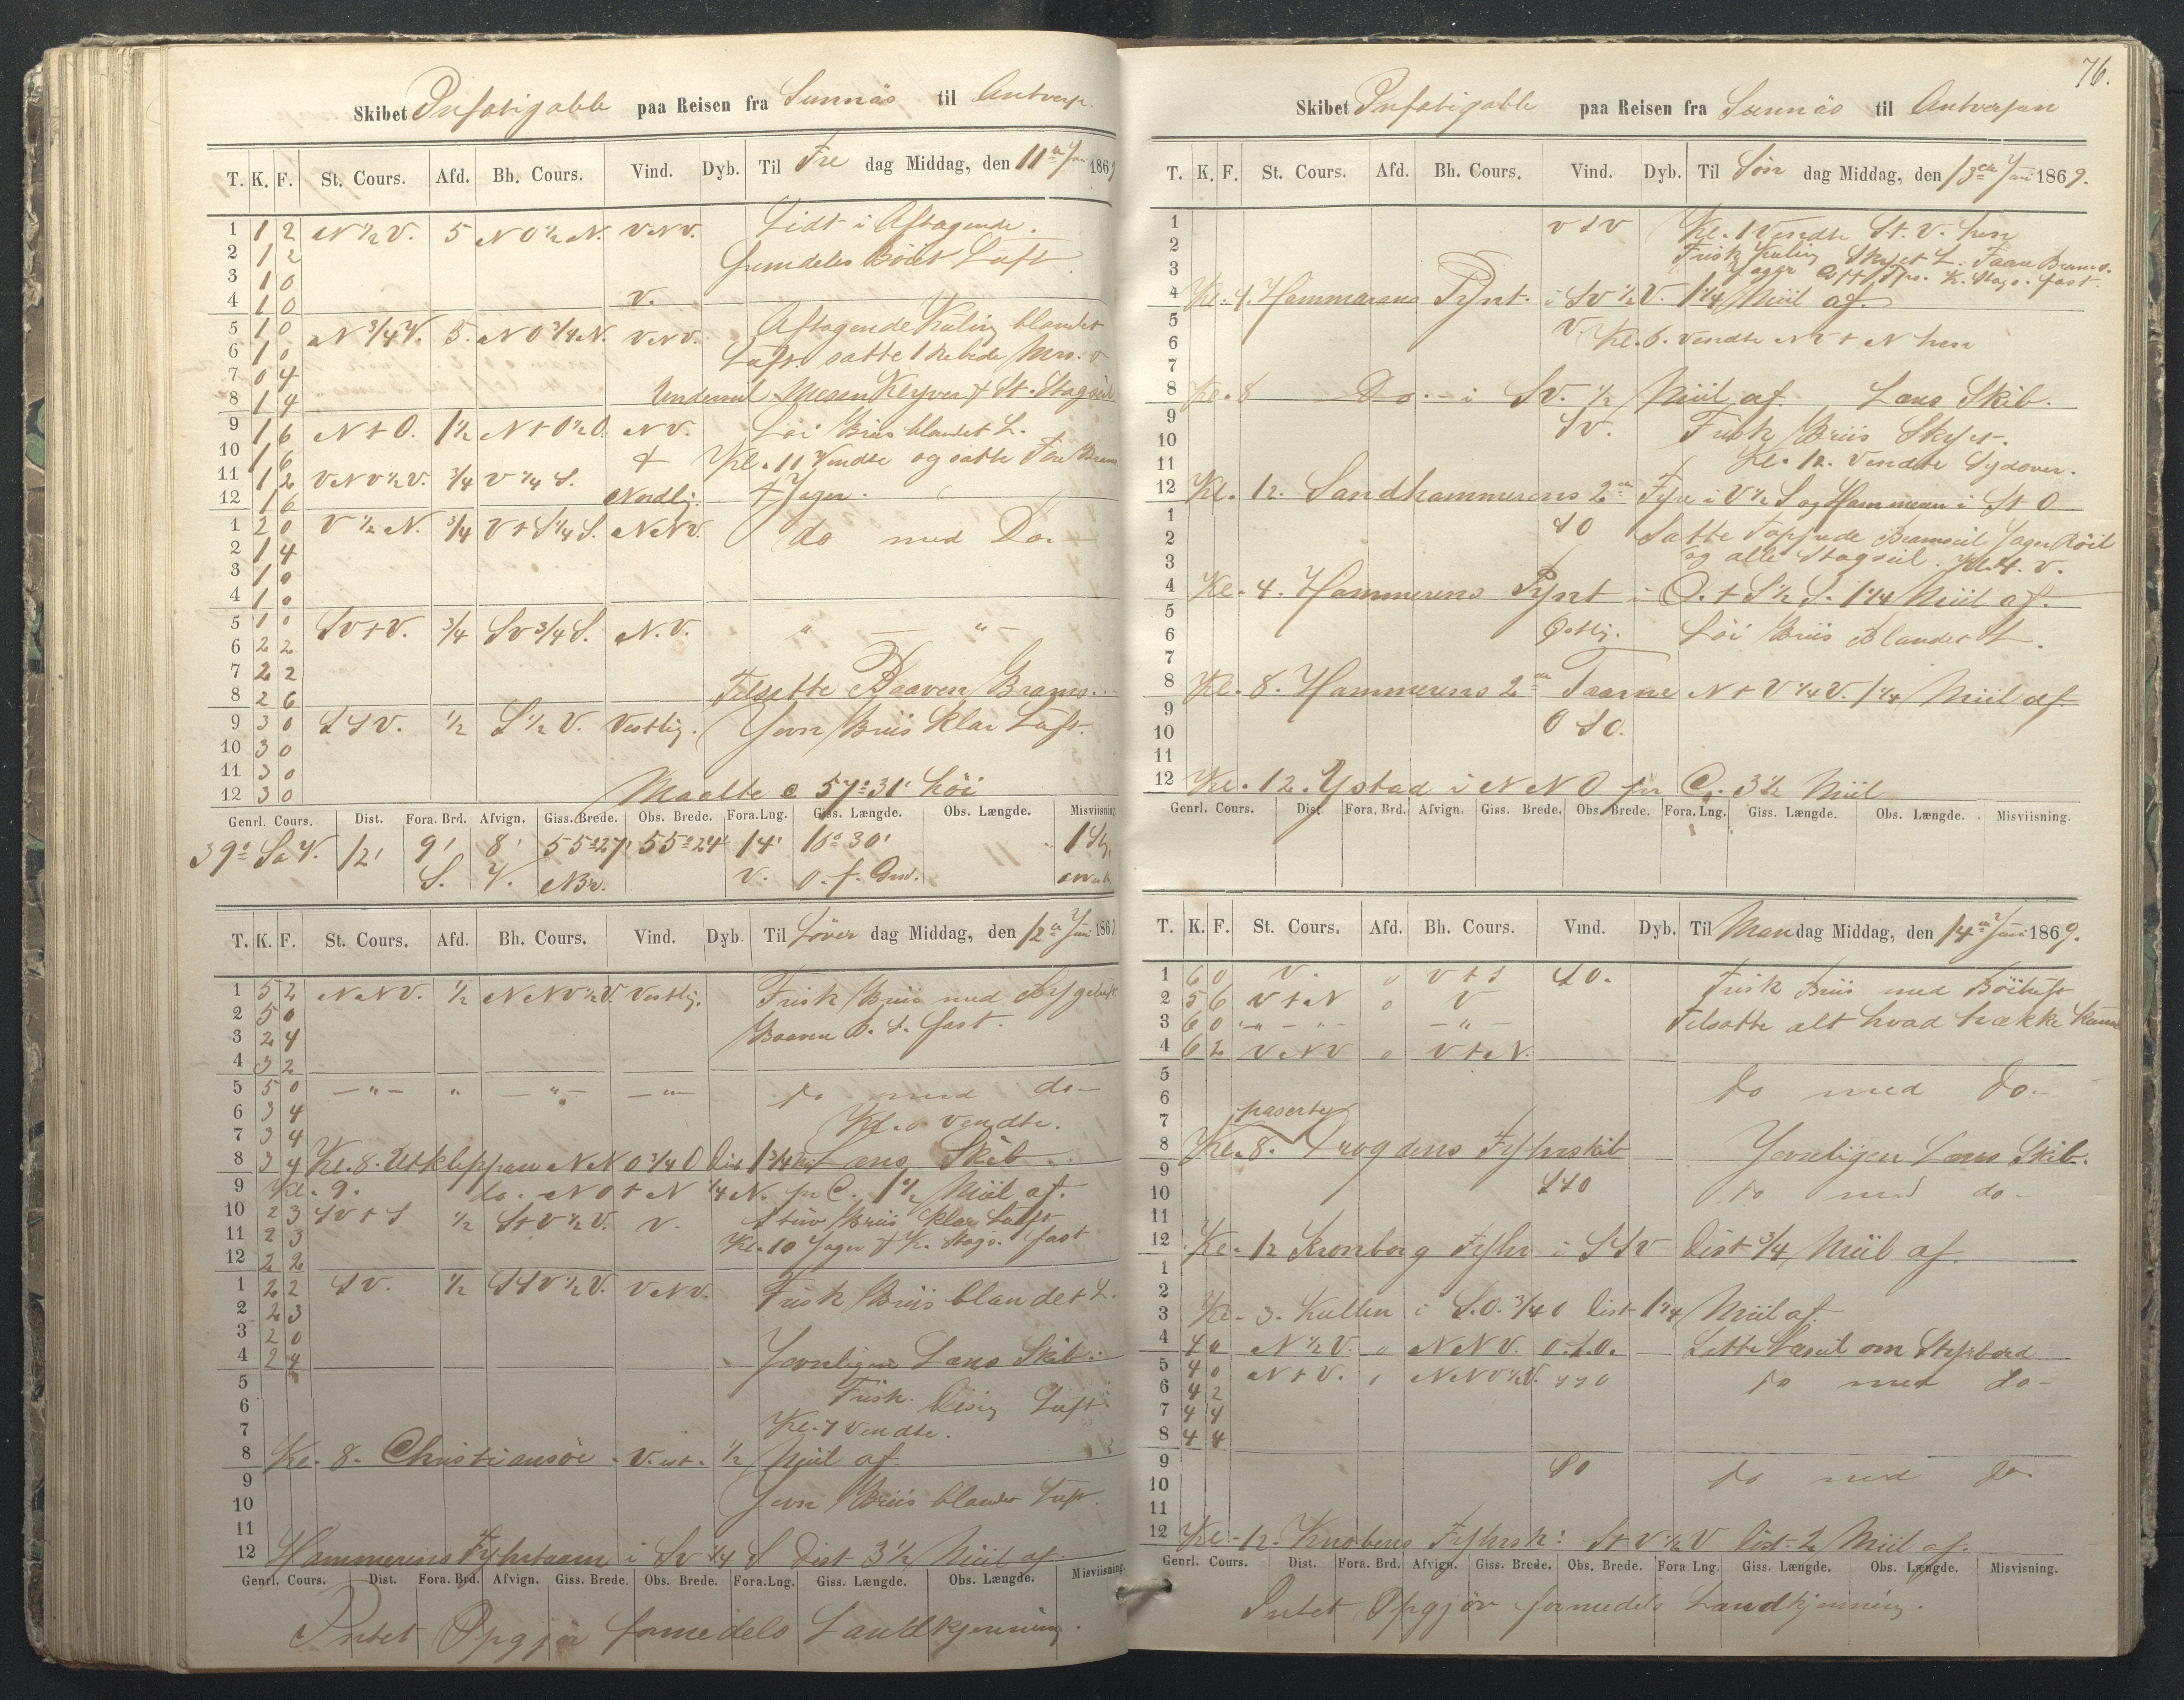 Skibet Infatigable paa Reisen fra Sunnäs til Antverp.
T. K. F. St. Cours. Afd. Bh. Cours. Vind. Dyb. Til Fre dag Middag, den 11te Juni 1869
1 1 2 N ½ V. 5 N O ½ N. V N V. Lidt i Aftagende.
2 1 2 fremdeles Böiet Luft
3 1 0
4 1 0 V.
5 1 0 N ¾ V. 5. N O ¾ N. V N V. Aftagende Kuling blandet
6 1 0 Luft. satte 1 Rebede Mrs. &
7 0 4
8 1 4 Underseil Mesan Klyver & St. Stagseil
9 1 6 N t O. 1½ N t O ½ O. N V. Löi Briis blandet L.
10 1 6 & Kl. 11 Vendte og satte Fore Bram
11 1 2 V N V ½ V. ¾ V ¼ S. & Jager.
12 1 6 Nordlig
1 2 0 V ½ N. ¾ V t S ¼ S. N N V. do med Do.
2 1 4
3 1 0
4 1 0
5 1 0 S V t V. ¾ S V ¾ S. N. V. " — " —
6 2 2
7 2 2
8 2 6 Tilsatte Baaven Brams.
9 3 0 S S V. ½ S ½ V. Vestlig. Jevn Briis Klar Luft.
10 3 0
11 3 0
12 3 0 Maalte 57° 31' höi
Genrl. Cours. Dist. Fora. Brd. Afvign. Giss. Brede. Obs. Brede. Fora. Lng. Giss. Længde. Obs. Længde. Misviisning.
39° S a V. 12' 9' 8' 55° 27' 55° 24' 14' 16° 30' 1 St.
S. V. N Br. V. O. f. Grw.
T. K. F. St. Cours. Afd. Bh. Cours. Vind. Dyb. Til Löver dag Middag, den 12te Juni 1869.
1 5 2 N N V. ½ N N V ½ V. Vestlig. Frisk Briis med
2 5 0 Baaven B. S. fast.
3 2 4
4 3 2
5 5 0 — " — " — " — — " — do med do —
6 3 4 Vendte.
7 3 4
8 3 4 Kl. 8. Utklippan N N O ¾ O Dist 1¾ Lens Skib.
9 Kl. 9. do. N O t N ¼ N. pr C. 1½ Miil af.
10 2 3 S V t S ½ S t V ½ V. V. Stiiv Briis klar Luft
11 2 3 Kl. 10 Jager & K. Stags. fast
12 2 2
1 2 2 S V. ½ S S V ½ V. V N V. Frisk Briis blandet L.
2 2 3
3 2 0
4 2 4 Jevnligen Lens Skib.
5 Frisk. Diisig Luft
6
7 Kl. 7 Vendte.
8 Kl. 8. Christiansöe. V. ½ Miil af.
9
10 Jevn Briis blandet Luft.
11
12 Hammerens Fyhrtaarn i S V ¼ S Dist 3½ Miil af.
Genrl. Cours. Dist. Fora. Brd. Afvign. Giss. Brede. Obs. Brede. Fora. Lng. Giss. Længde. Obs. Længde. Misviisning.
Intet Opgjör formedels Landkjenning.
76.
Skibet Infatigable paa Reisen fra Sunnäs til Antverpen
T. K. F. St. Cours. Afd. Bh. Cours. Vind. Dyb. Til Sön dag Middag, den 13de Juni 1869.
1 V S V Kl. 1 Vendte St. V. hen
2 Frisk Kuling Skyet L. Faan Brams.
3 Jager K. Stags. fast.
4 Kl. 4. Hammerens Pynt. i S V ½ V. 1¼ Miil af.
5 V.
6 Kl. 6. Vendte N V t N hen
7
8 Kl. 8 Do. i S V. ½ Miil af. Lens Skib.
9 S V. Frisk Briis Skyet.
10
11 Kl. 12. Vendte Sydover.
12 Kl. 12. Sandhammerens 2de Fyre i V ½ S og Hammeren i S t O
1 S O Satte Bramseil Jager Röil
2 og alle Stagseil. Kl. 4. V.
3
4 Kl. 4. Hammerens Pynt i O. t S ½ S. 1¼ Miil af.
5
6 Östlig. Löi Briis Blandet L.
7
8 Kl. 8. Hammerens 2de Taarne N t V ¼ V. 1¼ Miil af
9
10 O S O.
11
12 Kl. 12. Ystad i N N O pr C. 3½ Miil
Genrl. Cours. Dist. Fora. Brd. Afvign. Giss. Brede. Obs. Brede. Fora. Lng. Giss. Længde. Obs. Længde. Misviisning.
T. K. F. St. Cours. Afd. Bh. Cours. Vind. Dyb. Til Man dag Middag, den 14de Juni 1869.
1 6 0 V. 0 V t S S O. Frisk Briis med Böiluft
2 5 6 V t N 0 V
3 6 0 " — " — — " — Tilsatte alt hvad trække kan
4 6 2 V N V 0 V t N.
5 do med do.
6
7 paserte
8 Kl. 8. Drogdens Fyhrskib Jevnligen Lens Skib.
9 S S O
10 do med do —
11
12 Kl. 12 Kronborg Fyhr i S S V Dist ¾ Miil af.
1
2
3 Kl. 3. Kullen i S. O. ¾ O Dist 1¼ Miil af.
4 4 0 N ½ V. 0 N N V. O. S. O. Sette Læseil om Styrbord
5 4 0 N t V. 0 N N V ½ V. S S O do med do —
6 4 2
7 4 4
8 4 4
9 S O do med do.
10
11
12 Kl. 12. Knobens Fyhrsk: S t V ½ V Dist. 2 Miil af.
Genrl. Cours. Dist. Fora. Brd. Afvign. Giss. Brede. Obs. Brede. Fora. Lng. Giss. Længde. Obs. Længde. Misvisning.
Intet Opgjör formedels Landkjenning.